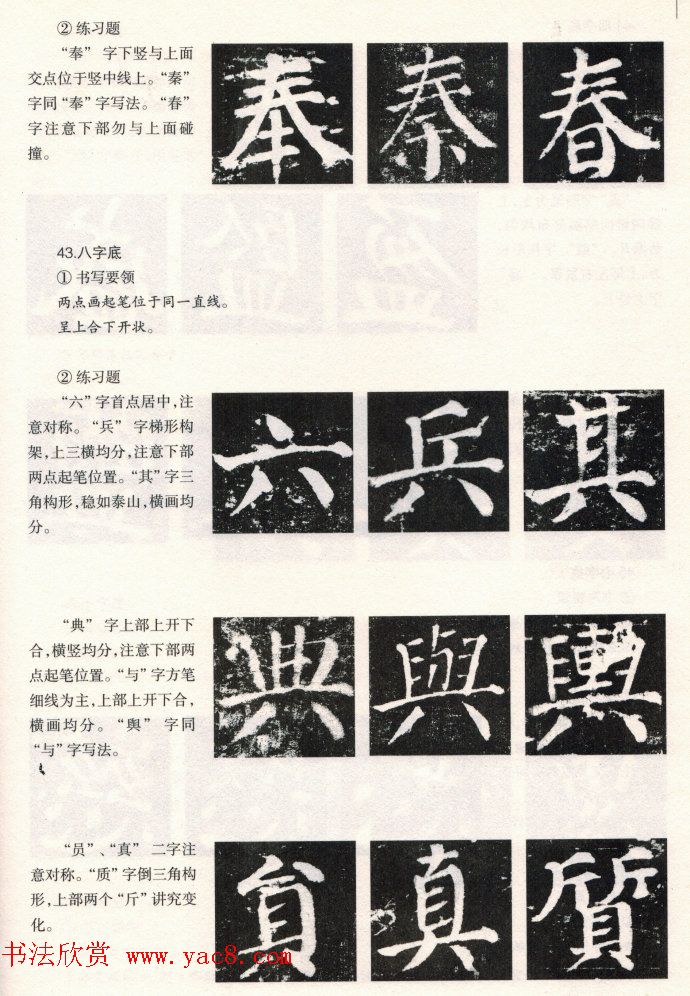 ② 练习题
“奉” 字下竖与上面
交点位于竖中线上。“秦”
字同“奉”字写法。“春”
字注意下部勿与上面碰
撞。
奉 秦 春
43.八字底
① 书写要领
两点画起笔位于同一直线。
呈上合下开状。
② 练习题
“六”字首点居中,注
意对称。“兵” 字梯形构
架,上三横均分,注意下部
两点起笔位置。“其”字三
角构形,稳如泰山,横画均
分。
六 兵 其
“典” 字上部上开下
合,横竖均分,注意下部两
点起笔位置。“与”字方笔
细线为主,上部上开下合,
横画均分。“舆” 字同
“与”字写法。
典 與 輿
“员”、“真” 二字注
意对称。“质”字倒三角构
形,上部两个“斤”讲究变
化。
貟 真 質
书法欣赏 www.yac8.com